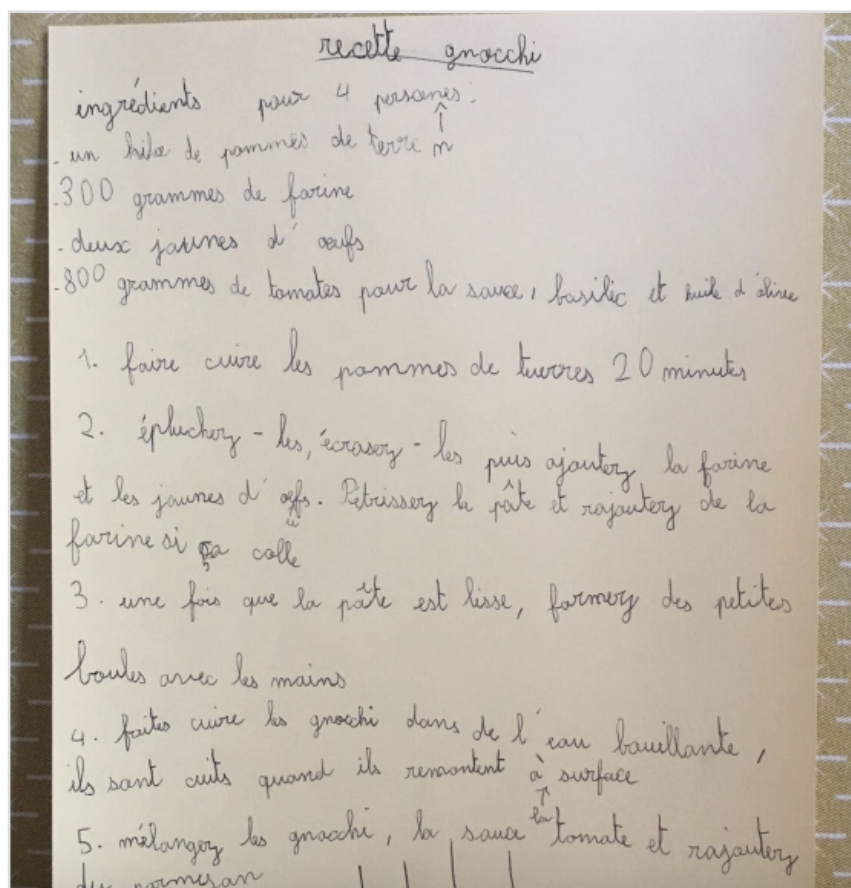 recette gnocchi
ingrédients pour 4 persones:
n
- un kilo de pommes de terre
- 300 grammes de farine
- deux jaunes d'œufs
- 800 grammes de tomates pour la sauce, basilic et huile d'olive
1. faire cuire les pommes de terres 20 minutes
2. épluchez-les, écrasez-les puis ajoutez la farine
et les jaunes d'œfs. Pétrissez la pâte et rajoutez de la
u
farine si ça colle
3. une fois que la pâte est lisse, formez des petites
boules avec les mains
4. faites cuire les gnocchi dans de l'eau bouillante,
ils sont cuits quand ils remontent à surface
la
5. mélangez les gnocchi, la sauce tomate et rajoutez
du parmesan